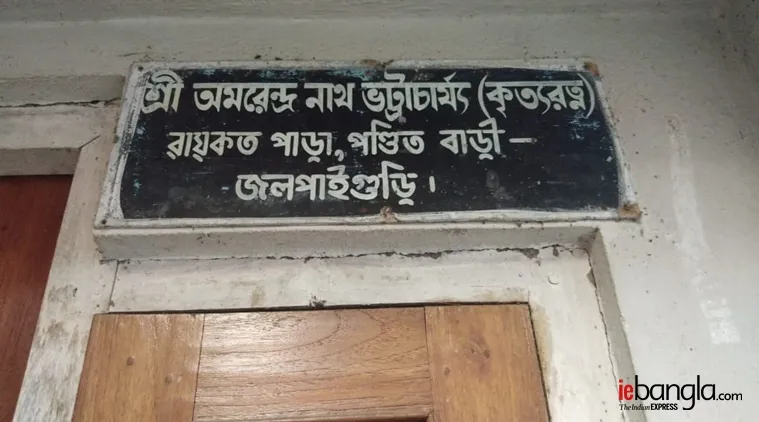 শ্রী অমরেন্দ্র নাথ ভট্টাচার্য্য (কৃত্যরত্ন)
রায়কত পাড়া, পণ্ডিত বাড়ী —
জলপাইগুড়ি।
iebangla.com
The Indian EXPRESS